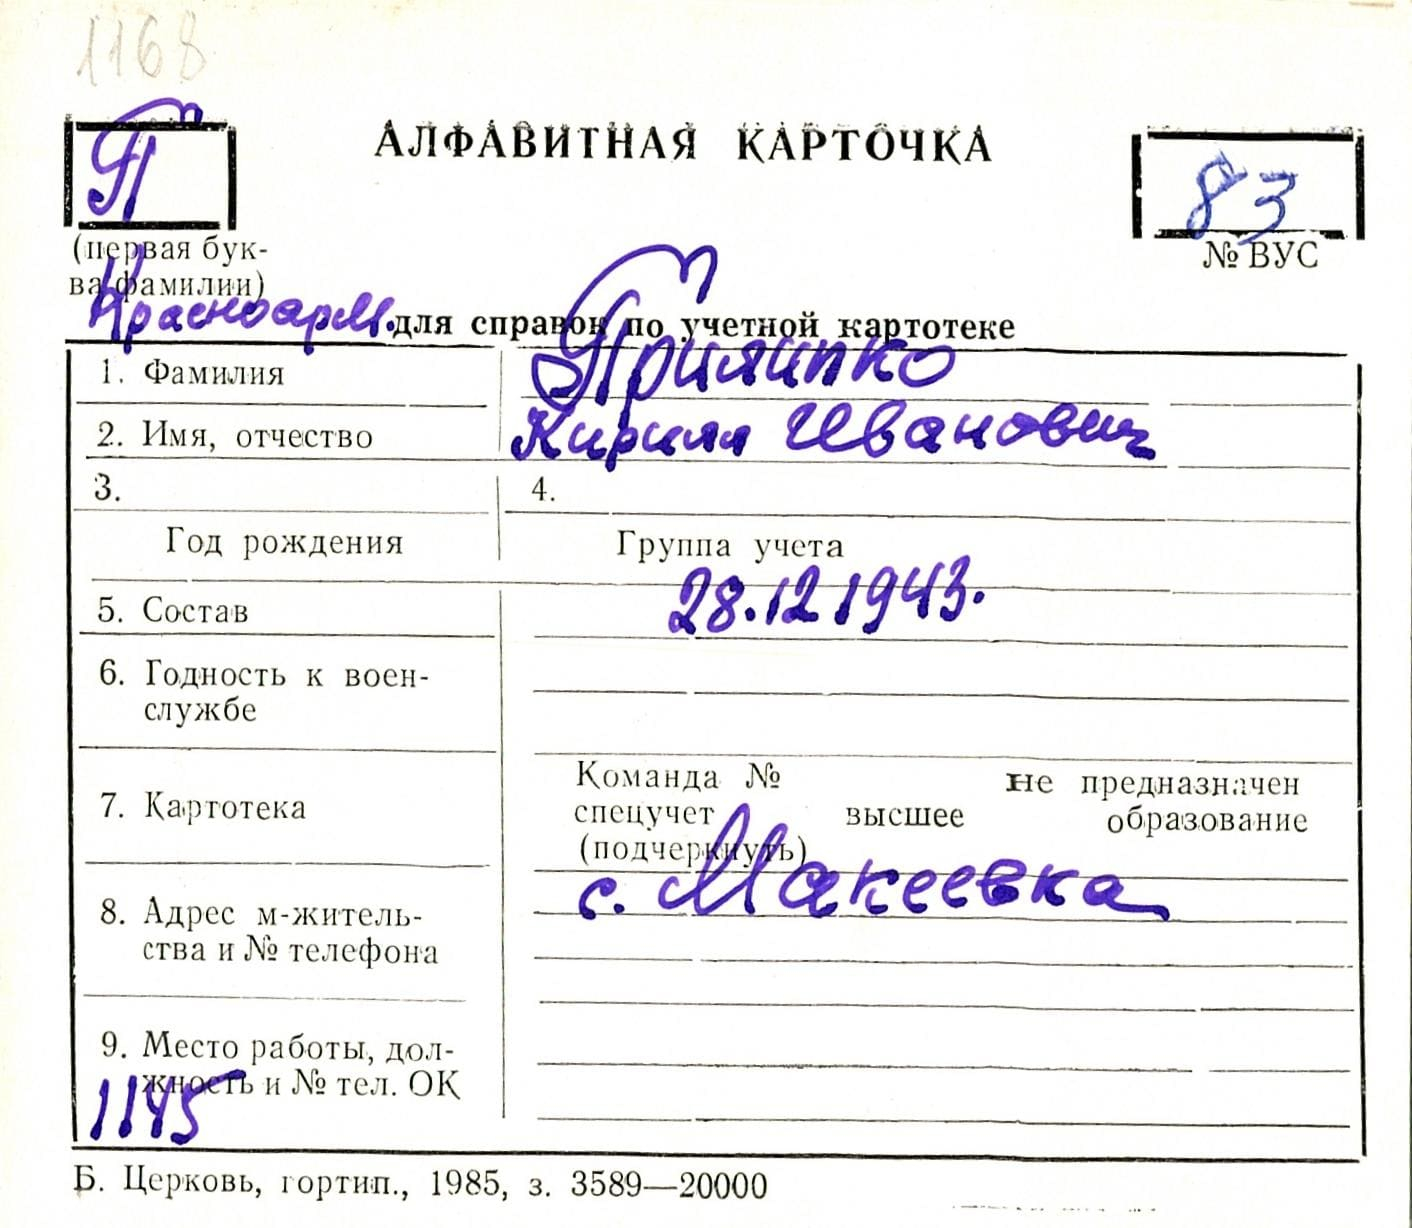 1168
П
АЛФАВИТНАЯ КАРТОЧКА
83
(первая бук-
ва фамилии)
№ ВУС
Красноарм. для справок по учетной картотеке
1. Фамилия Прилипко
2. Имя, отчество Кирилл Иванович
3. 4.
Год рождения Группа учета
5. Состав 28.12 1943.
6. Годность к воен-
службе
7. Картотека
Команда № не предназначен
спецучет высшее образование
(подчеркнуть)
с. Макеевка
8. Адрес м-житель-
ства и № телефона
9. Место работы, дол-
жность и № тел. ОК
1145
Б. Церковь, гортип., 1985, з. 3589—20000